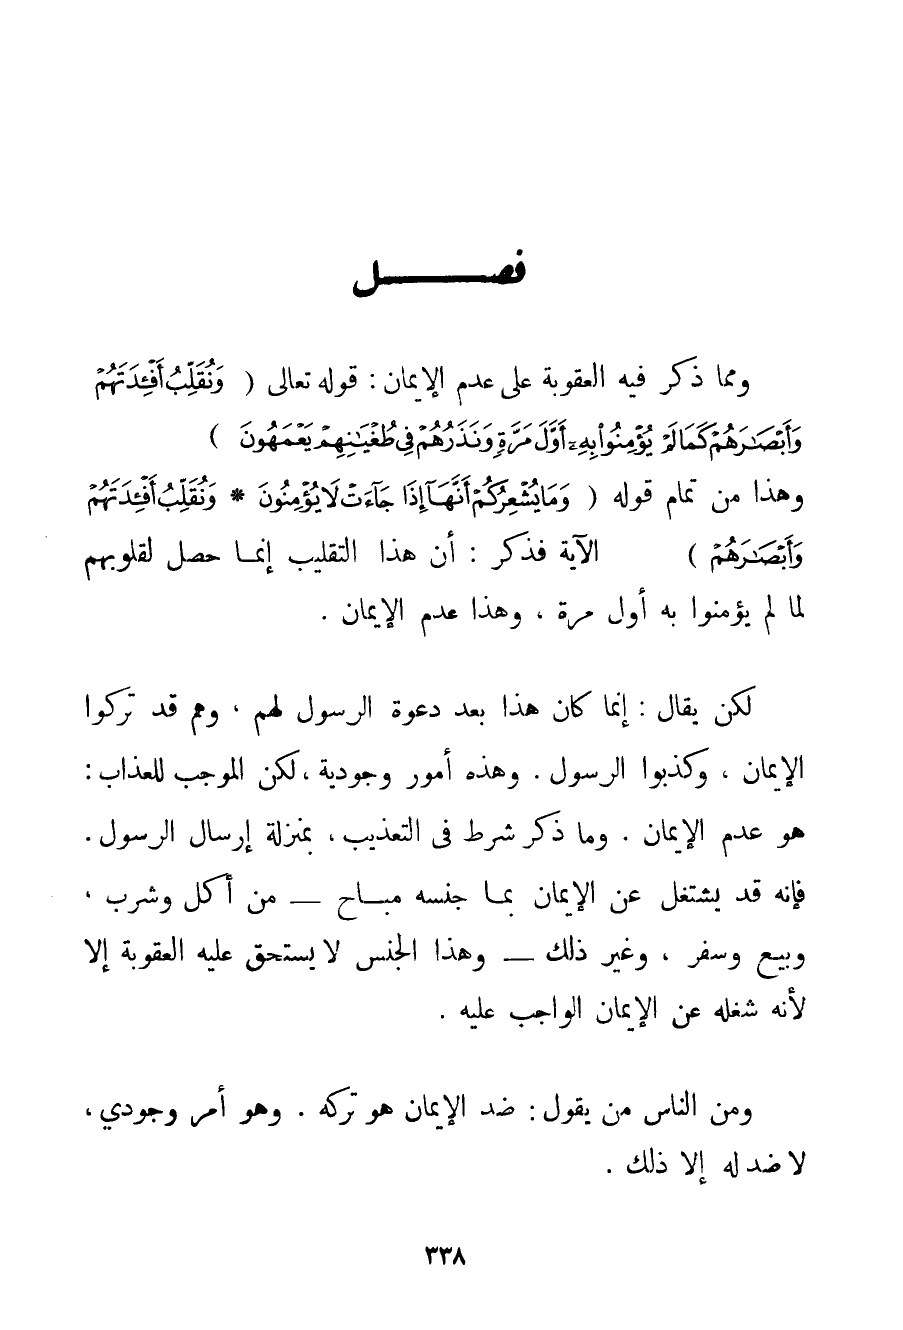 فصـــــــل
ومما ذكر فيه العقوبة على عدم الإيمان : قوله تعالى ( وَنُقَلِّبُ أَفْـِٔدَتَهُمْ
وَأَبْصَـٰرَهُمْ كَمَا لَمْ يُؤْمِنُوا۟ بِهِۦٓ أَوَّلَ مَرَّةٍ وَنَذَرُهُمْ فِى طُغْيَـٰنِهِمْ يَعْمَهُونَ )
وهذا من تمام قوله ( وَمَا يُشْعِرُكُمْ أَنَّهَآ إِذَا جَآءَتْ لَا يُؤْمِنُونَ * وَنُقَلِّبُ أَفْـِٔدَتَهُمْ
وَأَبْصَـٰرَهُمْ ) الآية فذكر : أن هذا التقليب إنمـا حصل لقلوبهم
لما لم يؤمنوا به أول مرة ، وهذا عدم الإيمان .
لكن يقال : إنما كان هذا بعد دعوة الرسول لهم ، وهم قد تركوا
الإيمان ، وكذبوا الرسول . وهذه أمور وجودية ، لكن الموجب للعذاب :
هو عدم الإيمان . وما ذكر شرط فى التعذيب ، بمنزلة إرسال الرسول .
فإنه قد يشتغل عن الإيمان بمـا جنسه مبـاح — من أكل وشرب ،
وبيع وسفر ، وغير ذلك — وهذا الجنس لا يستحق عليه العقوبة إلا
لأنه شغله عن الإيمان الواجب عليه .
ومن الناس من يقول : ضد الإيمان هو تركه . وهو أمر وجودي ،
لا ضد له إلا ذلك .
٣٣٨